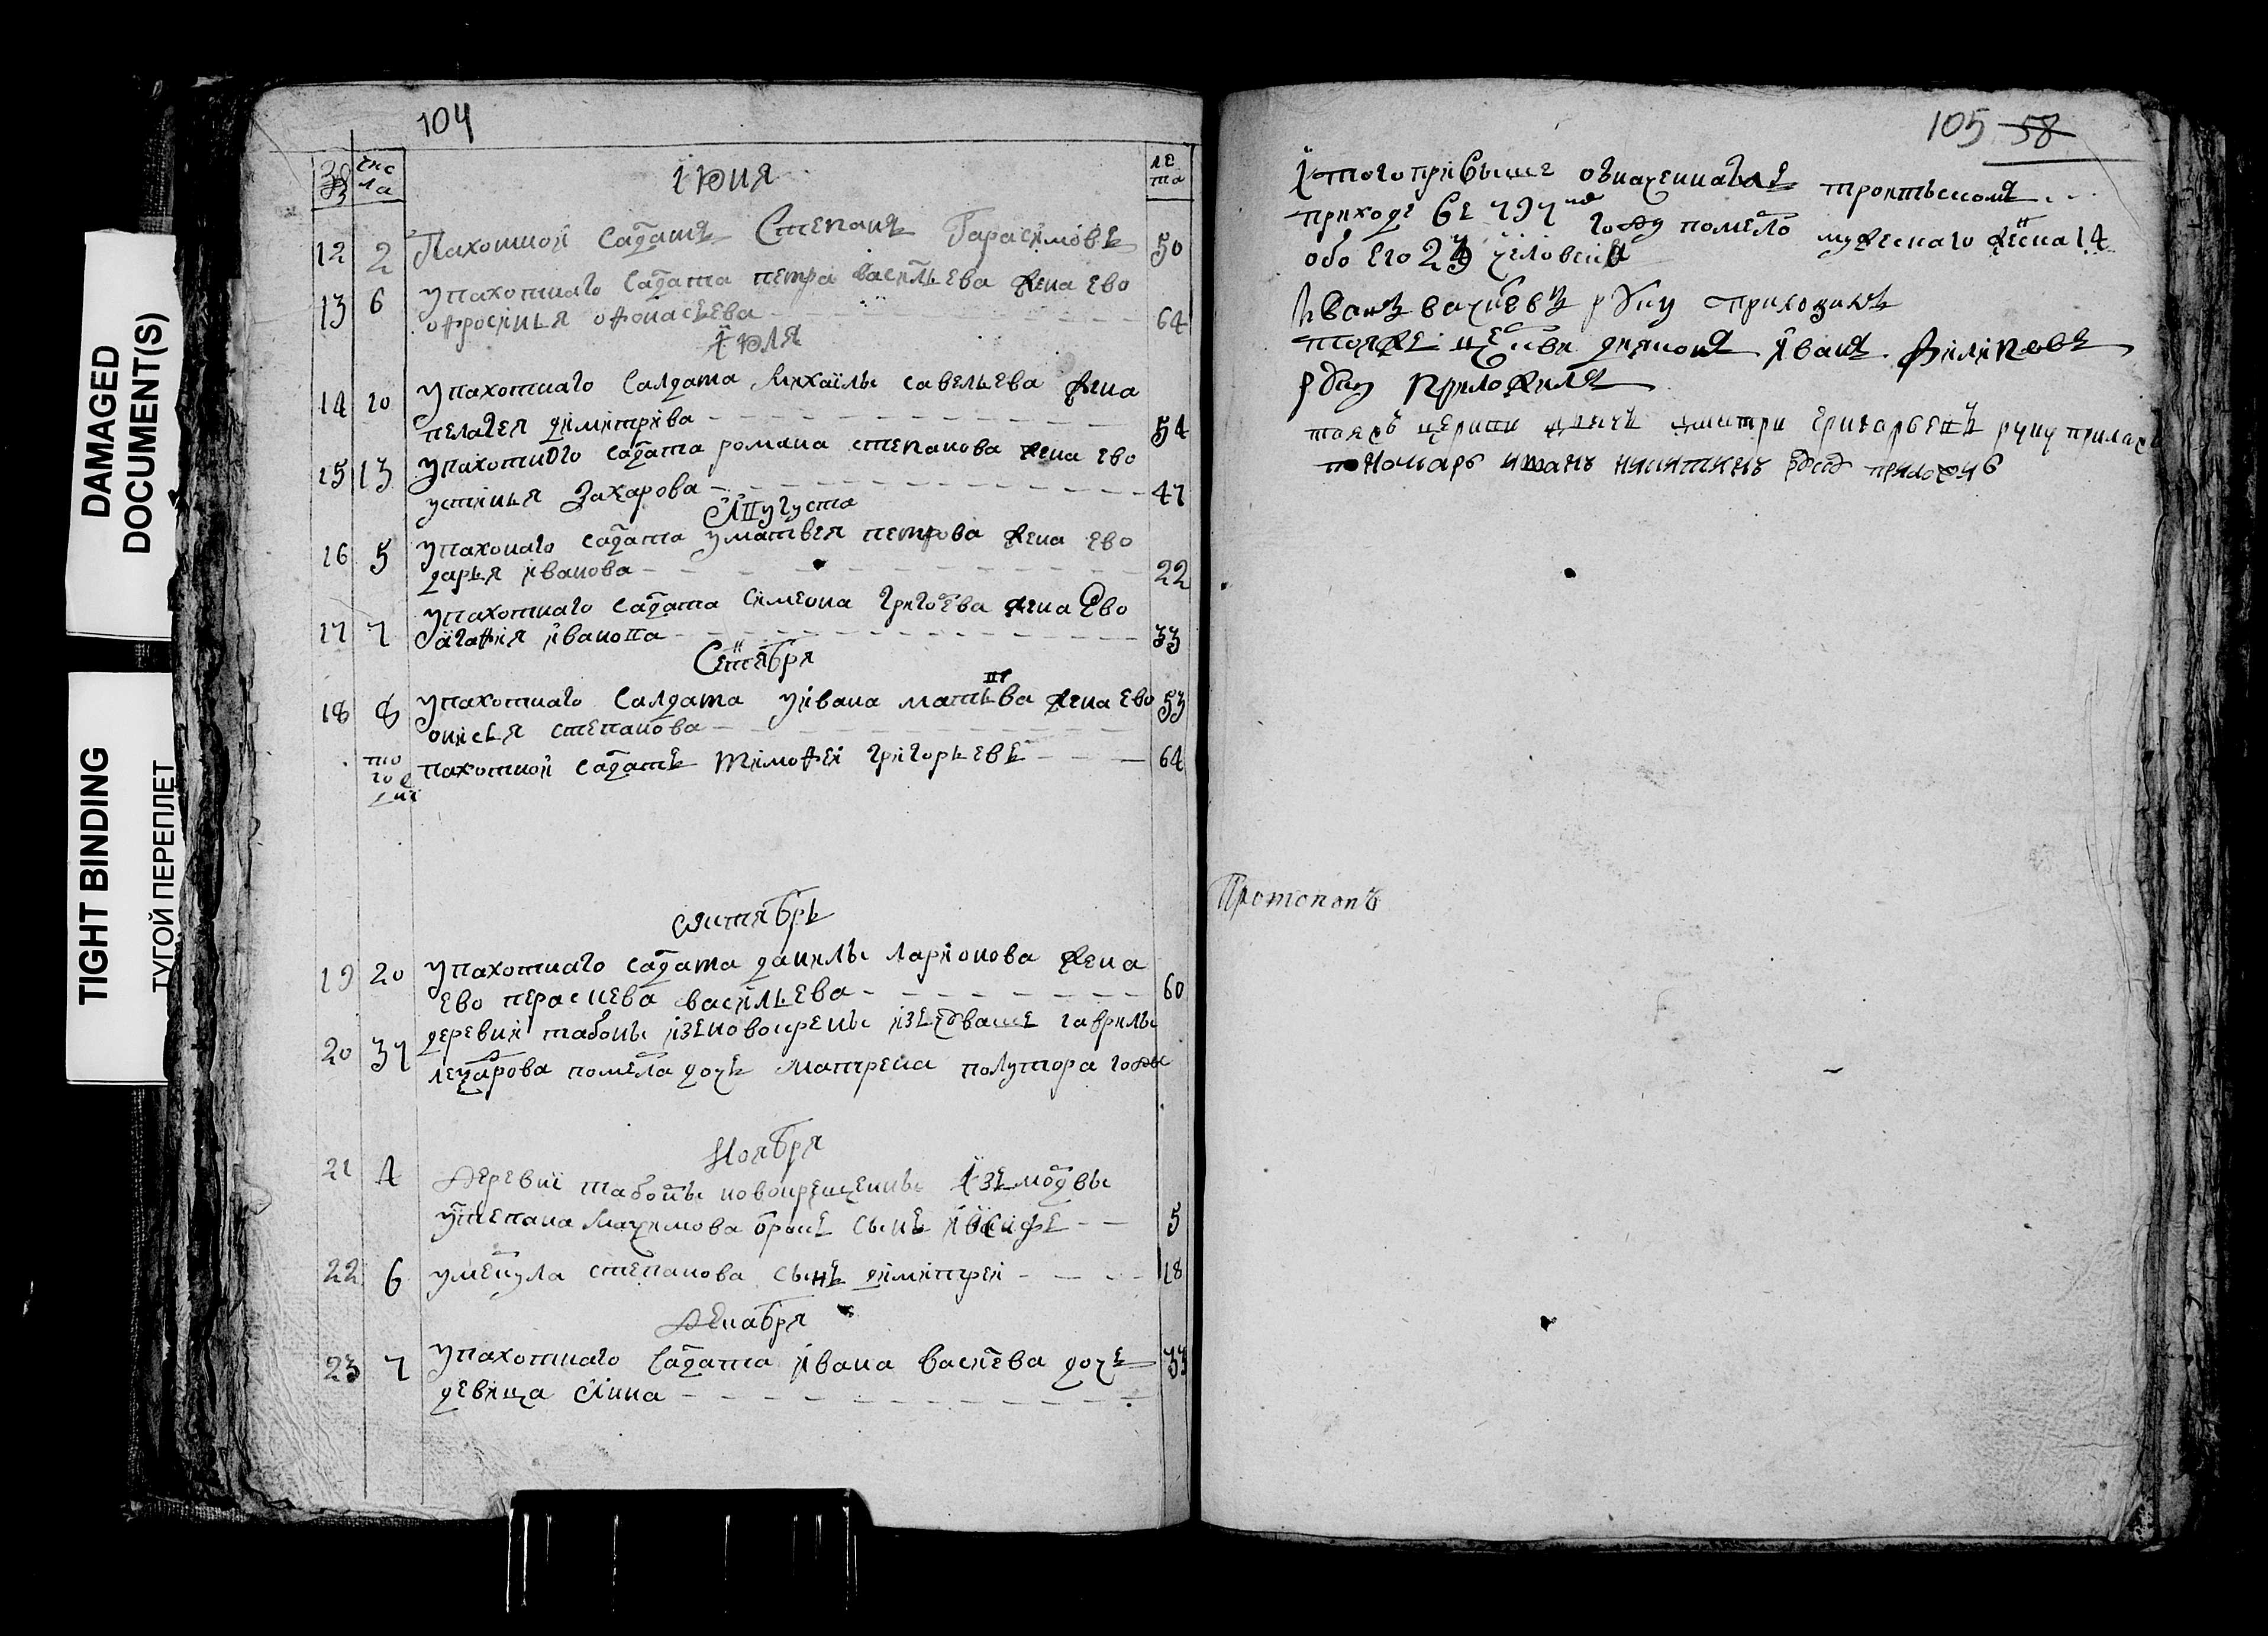 DAMAGED
DOCUMENT(S)
TIGHT BINDING
ТУГОЙ ПЕРЕПЛЕТ
104
чис
ла
Іюня
ле
та
12 2 Пахотной садатъ Степанъ Гарасимовъ 50
13 6 упахотнаго садата петра васильева жена ево
офросинья офонасьева 64
Июля
14 10 упахотнаго салдата михаилы савельева жена
пелагея димитрева 54
15 13 упахотнаго садата романа степанова жена ево
устинья Захарова 47
Августа
16 5 упахонаго садата уматвея петрова жена ево
дарья иванова 22
17 7 упахотнаго садата симеона григоева жена Ево
агафия иванова 33
Сентября
18 8 упахотнаго салдата уивана матвьва жена ево 53
онисья степанова
того дни пахотной садатъ тимофеи григорьевъ 64
октябрь
19 20 упахотнаго садата данилы ларионова жена
ево парасцева васильева 60
20 31 деревни табоны изеновокрены гаврилы
помела дочь матрена полутора годы
Ноября
21 4 Деревни табоны новокрещены иземодвы
устепана сынъ 5
22 6 степанова сынъ димитреи 18
Декабря
23 7 упахотнаго садата ивана васиева дочь 33
девица Анна
105 58
Итого привыше означеннаго троитьскомъ
приходе Ве 797мъ году помело мужескаго женска 14
обоего 23 человека
Иванъ руку приложилъ
тояже церкви диаконъ Иванъ Филиповъ
руку приложилъ
тояжъ церкви дьячекъ дмитри григорьевъ руку приложи
пономарь иванъ никитинъ руку приложи
Протопопъ